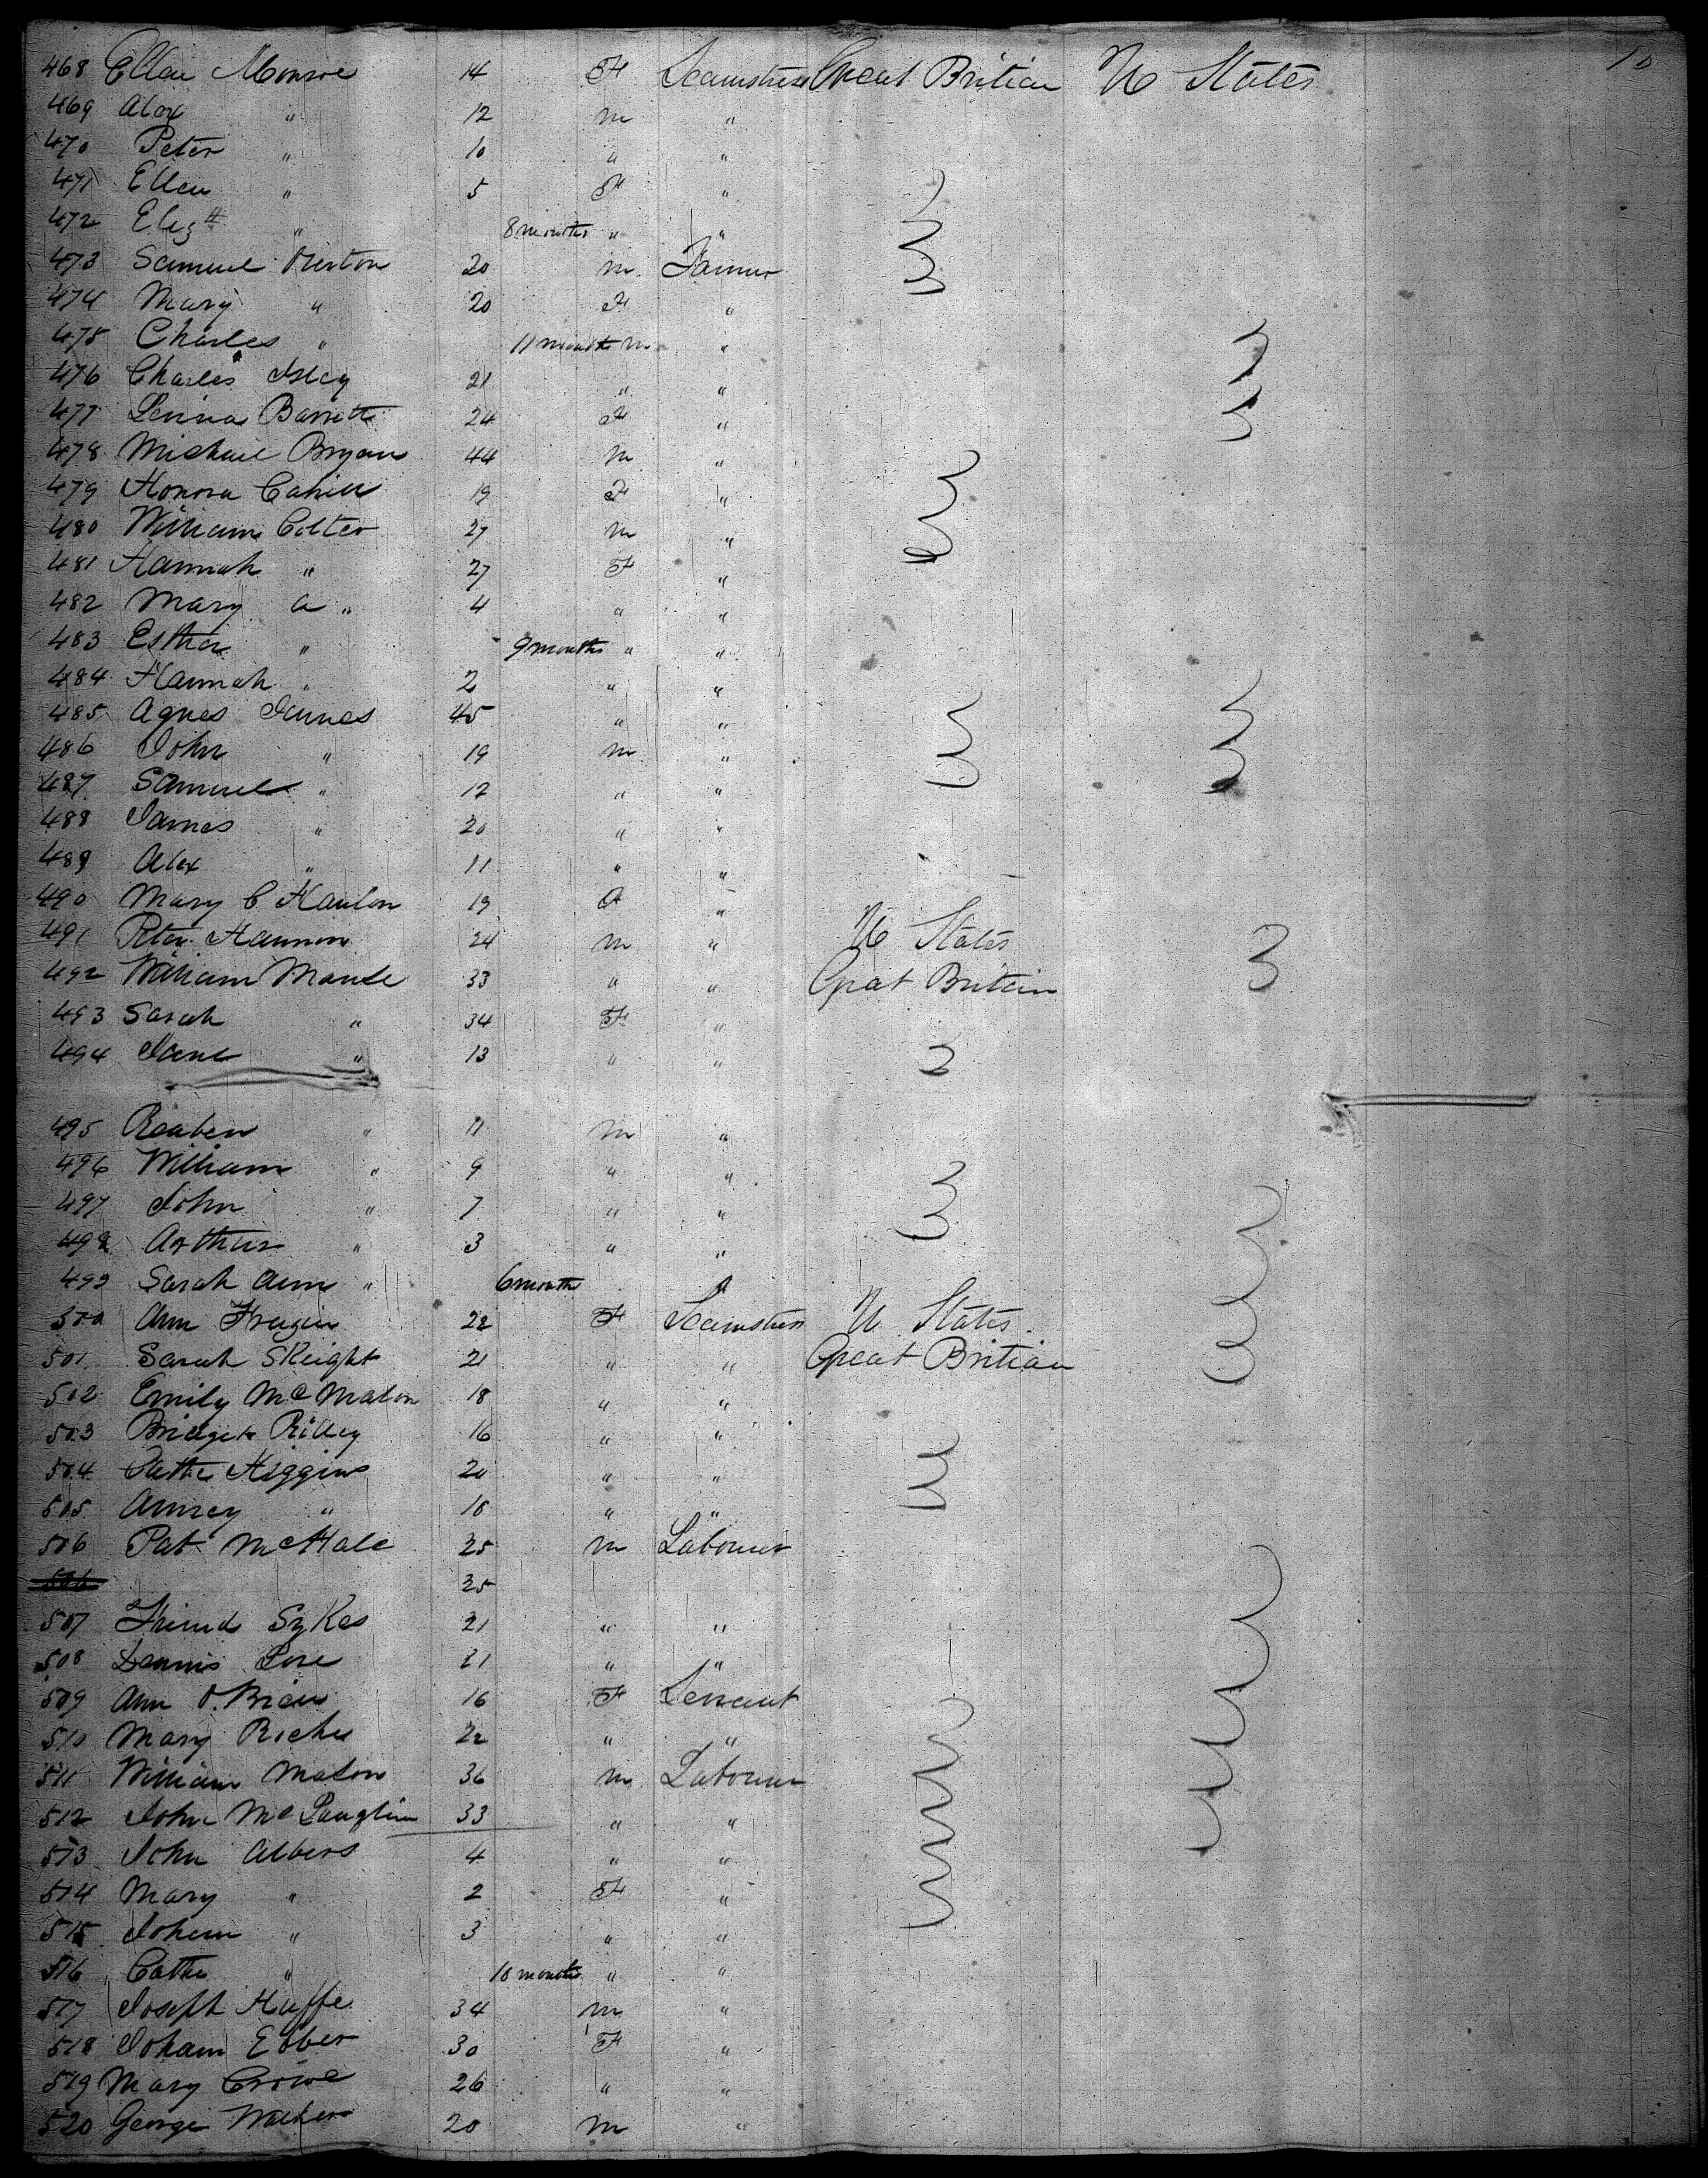 10
468 Ellen Monroe 14 F Seamstress Great Britian U States
469 Alex " 12 m "
470 Peter " 10 " "
471 Ellen " 5 F "
472 Eliz th " 8 months " "
473 Samuel 20 m Farmer
474 Mary " 20 F "
475 Charles " 11 months m "
476 Charles 21 " "
477 Barrett 24 F "
478 Michael Bryan 44 m "
479 Honora Cahill 19 F "
480 William Colter 27 m "
481 Hannah " 27 F "
482 Mary A " 4 " "
483 Esther " 9 months " "
484 Hannah " 2 " "
485 Agnes Innes 45 " "
486 John " 19 m "
487 Samuel " 12 " "
488 James " 20 " "
489 Alex " 11 " "
490 Mary C Hanlon 19 F "
491 Peter Hannon 24 m " U States
492 William Maude 33 " " Great Britain
493 Sarah " 34 F "
494 Jane " 13 " "
495 Reuben " 11 m "
496 William " 9 " "
497 John " 7 " "
498 Arthur " 3 " "
499 Sarah Ann " 6 months
500 Ann 22 F Seamstress U States
501 Sarah Skeight 21 " " Great Britian
502 Emily McMahon 18 " "
503 Bridget Rilley 16 " "
504 Cathe Higgins 20 " "
505 Anney " 18 " "
506 Pat McHale 25 m Labourer
506 25
507 Friend Sykes 21 " "
508 Dennis 21 " "
509 Ann O.Brien 16 F Servant
510 Mary Roche 22 " "
511 William Maton 36 m Labourer
512 John McLaughlin 33 " "
513 John Albers 4 " "
514 Mary " 2 F "
515 Joham " 3 " "
516 Cathe " 10 months " "
517 Joseph Huffe 34 m "
518 Joham Ebber 30 F "
519 Mary Crowe 26 " "
520 George Walker 20 m "